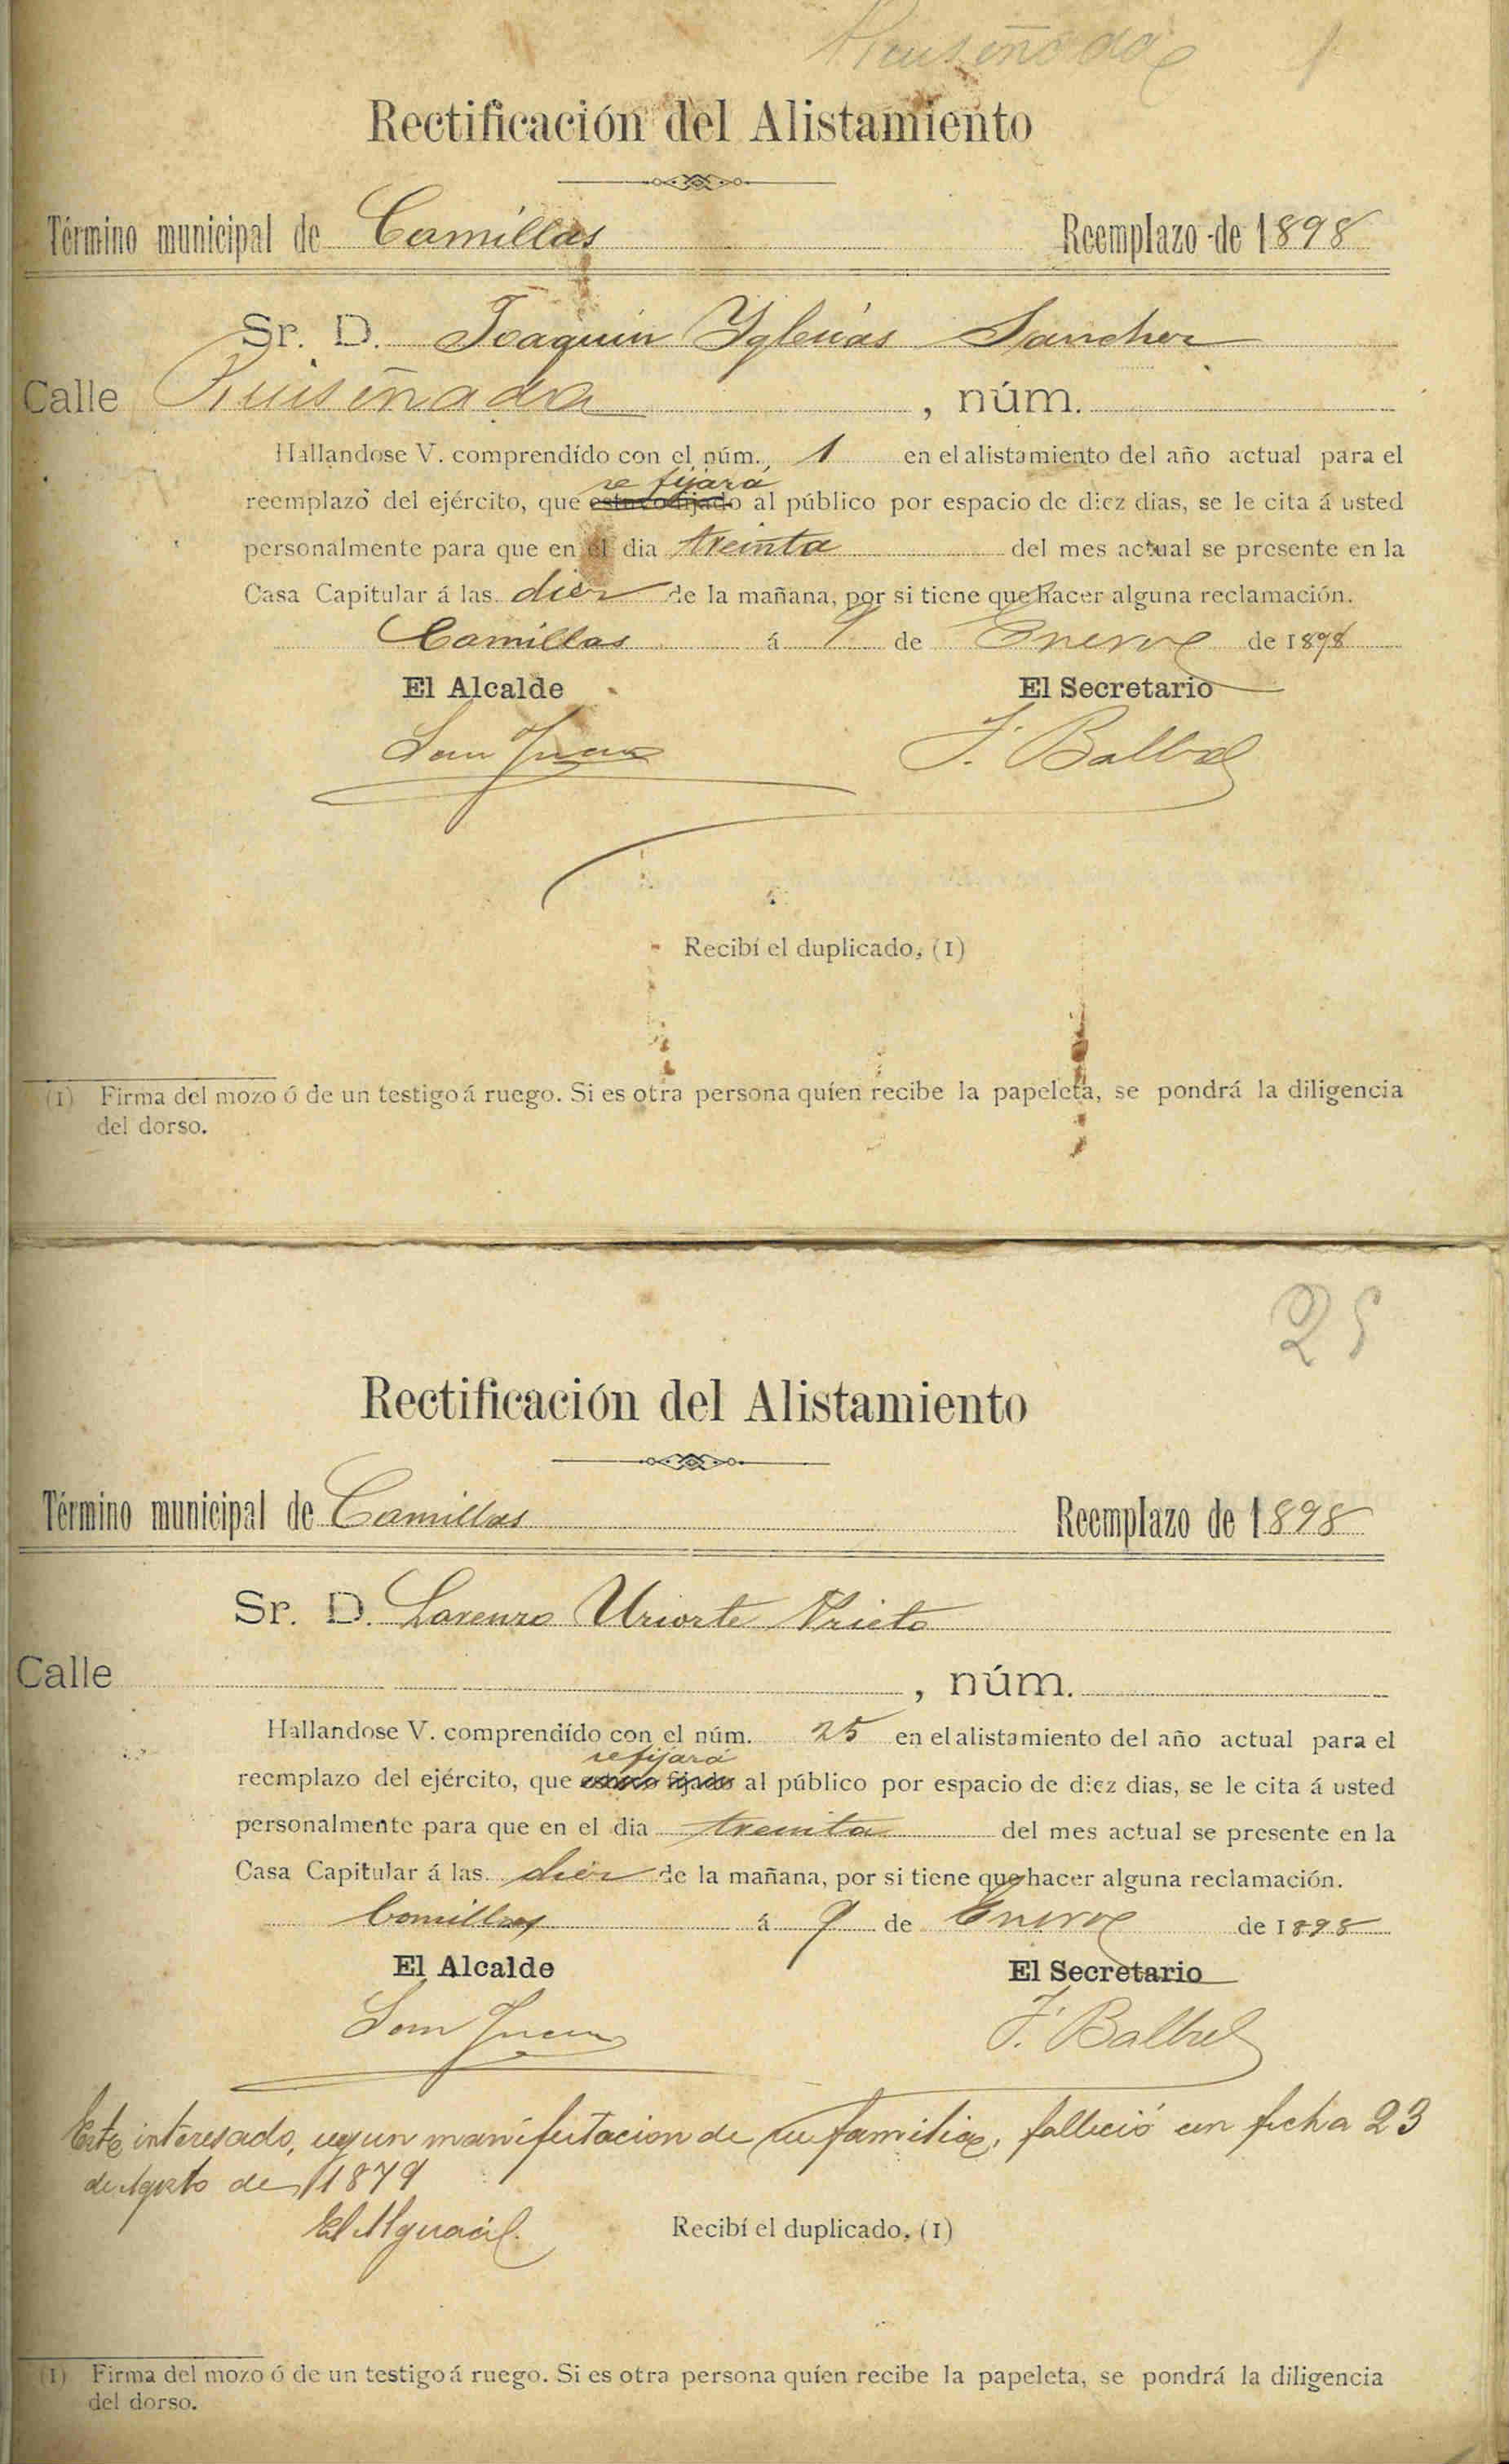 Ruiseñada 1
Rectificación del Alistamiento
Término municipal de Comillas Reemplazo de 1898
Sr. D. Joaquin Yglesias Sanchez
Calle Ruiseñada , núm.
Hallandose V. comprendído con el núm. 1 en el alistamiento del año actual para el
se fijará
reemplazo del ejército, que estará fijado al público por espacio de diez dias, se le cita á usted
personalmente para que en el dia treinta del mes actual se presente en la
Casa Capitular á las diez de la mañana, por si tiene que hacer alguna reclamación.
Comillas á 9 de Enero de 1898
El Alcalde El Secretario
San Juan F. Balbas
Recibí el duplicado, (1)
(1) Firma del mozo ó de un testigo á ruego. Si es otra persona quíen recibe la papeleta, se pondrá la diligencia
del dorso.
25
Rectificación del Alistamiento
Término municipal de Comillas Reemplazo de 1898
Sr. D. Lorenzo Uriarte Prieto
Calle , núm.
Hallandose V. comprendído con el núm. 25 en el alistamiento del año actual para el
se fijará
reemplazo del ejército, que fijado al público por espacio de diez dias, se le cita á usted
personalmente para que en el dia treinta del mes actual se presente en la
Casa Capitular á las diez de la mañana, por si tiene que hacer alguna reclamación.
Comillas á 9 de Enero de 1898
El Alcalde El Secretario
San Juan F. Balbas
Este interesado, segun manifestacion de su familia, falleció en fecha 23
de Agosto de 1879
El Alguacil.
Recibí el duplicado, (1)
(1) Firma del mozo ó de un testigo á ruego. Si es otra persona quíen recibe la papeleta, se pondrá la diligencia
del dorso.